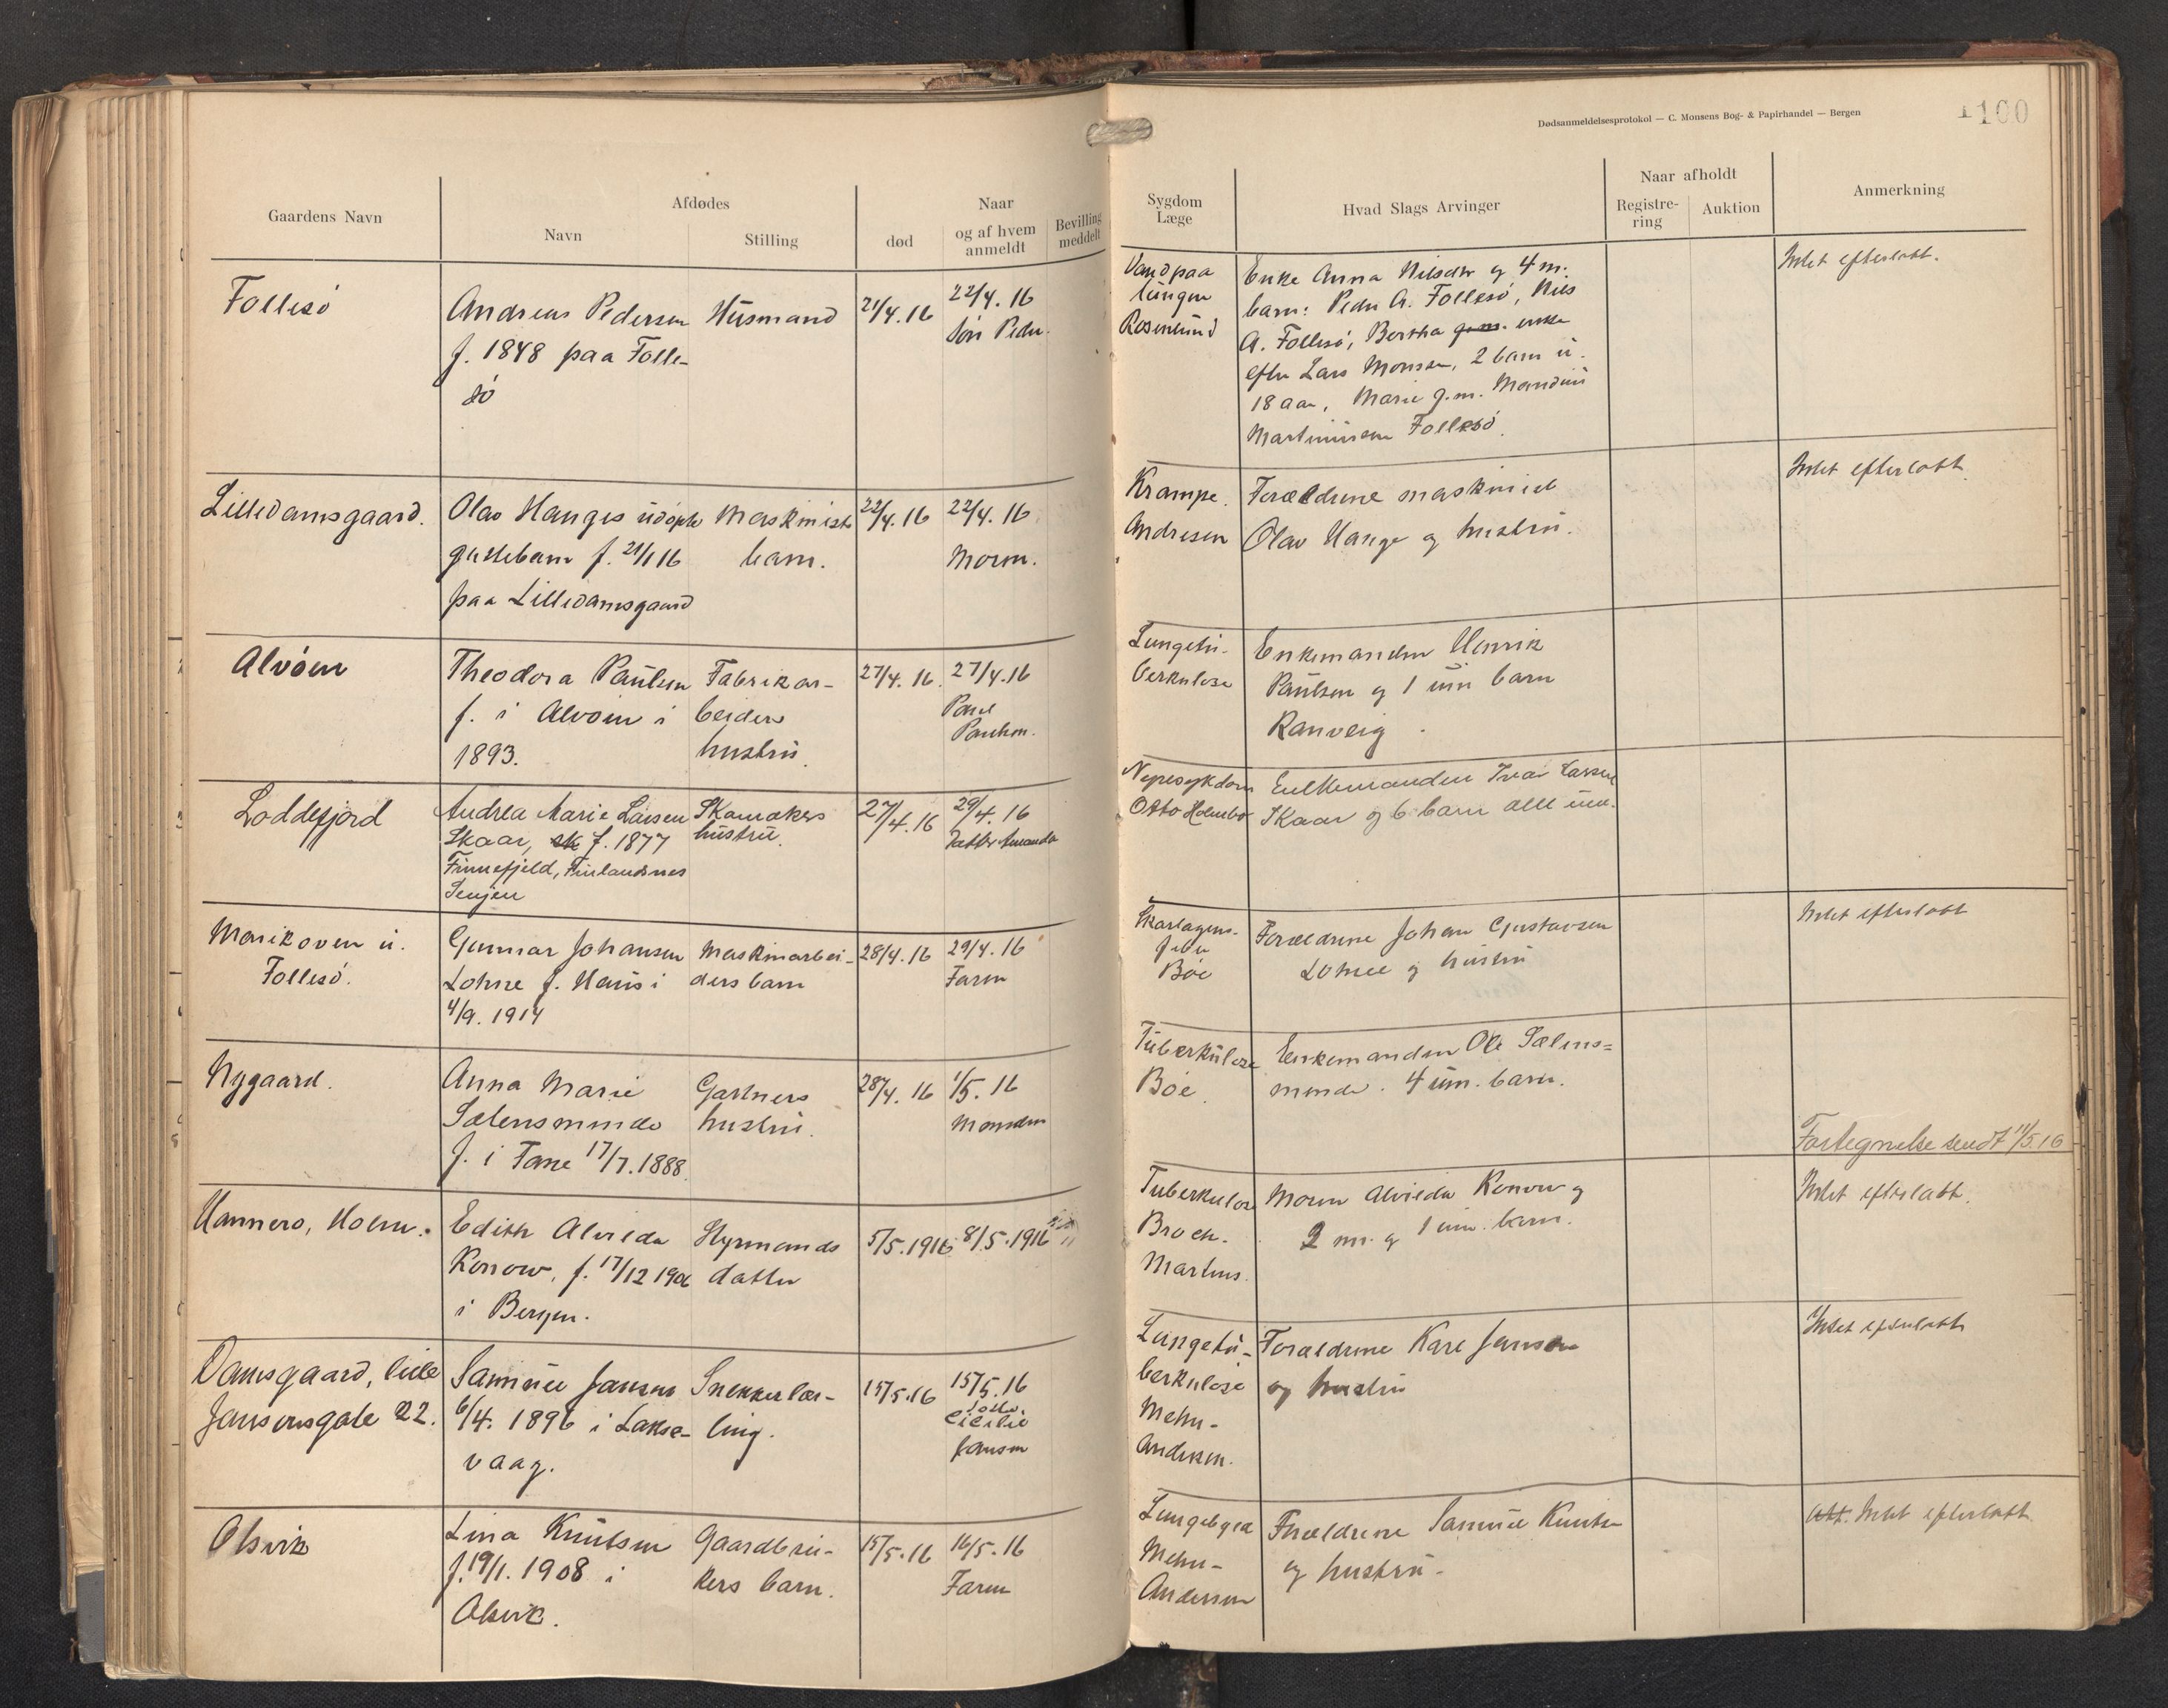 Dødsanmeldelsesprotokol — C. Monsens Bog- & Papirhandel — Bergen
100
Gaardens Navn
Afdødes
Navn
Stilling
død
Naar
og af hvem
anmeldt
Bevilling
meddelt
Sygdom
Læge
Hvad Slags Arvinger
Naar afholdt
Registre-
ring
Auktion
Anmerkning
Follesö
Andreas Pedersen
f. 1848 paa Folle-
sö
Husmand
21/4.16
22/4.16
Sön Peder.
Vand paa
lungen
Rosenlund
Enke Anna Nilsdtr og 4 m.
barn: Peder A. Follesö, Nils
A. Follesö, Bertha g.m. enke
efter Lars Monsen, 2 barn u.
18 aar, Marie g.m.
Follesö.
Intet efterlatt.
Lilledamsgaard.
Olav Hanges udöpte
pikebarn f. 21/1 16
paa Lilledamsgaard
Maskinist
barn.
22/4.16
22/4.16
Moren.
Krampe.
Andresen
Forældrene maskinist
Olav Hange og hustru.
Intet efterlatt
Alvöen
Theodora Paulsen
f. i Alvöen i
1893.
Fabrikar-
beiders
hustru.
27/4.16.
27/4.16
Paulsen.
Lungetu-
berkulose
Enkemanden Henrik
Paulsen og 1 um barn
Ranveig.
Loddefjord
Andrea Marie Larsen
Skaar, f. 1877
Finnefjeld, Finlandsnes
Senjen
Skomakers
hustru.
27/4.16
29/4.16
Datter Amanda
Nyresykdom
Otto Holmbo
Enkemanden Ivar Larsen
Skaar og 6 barn alle um.
Marikoven u.
Follesö.
Gunnar Johansen
Lohne f. Haus i
4/9. 1914
Maskinarbei-
ders barn
28/4.16
29/4.16
Faren
Skarlagens-
feber
Böe
Forældrene Johan Gustavsen
Lohne og hustru
Intet efterlatt
Nygaard.
Anna Marie
Sælensminde
f. i Fane 17/7.1888.
Gartners
hustru.
28/4.16
1/5.16
Manden
Tuberkulose
Böe.
Enkemanden Ole Sælens=
minde. 4 um. barn.
Fortegnelse sendt 11/5 16
Hannero, Holm.
Edith Alvilda
Konow, f. 17/12 1906
i Bergen.
Styrmands
datter
5/5.1916
8/5.1916
Tuberkulose
Broch.
Martens.
Moren Alvilda Konow og
2 m. og 1 um. barn.
Intet efterlatt.
Damsgaard, lille
Jansensgate 22.
Samuel Jansen
6/4. 1896 i Lakse-
vaag.
Snekkerlær-
ling.
15/5.16
15/5.16
Cicilie
Jansen
Lungetu-
berkulose
Mehn-
Andersen.
Forældrene Karl Jansen
og hustru
Intet efterlatt
Olsvik
Lina Knutsen
f. 19/1. 1908 i
Olsvik.
Gaardbru-
kers barn.
15/5.16
16/5.16
Faren
Mehn-
Andersen
Forældrene Samuel Knutsen
og hustru.
Intet efterlatt